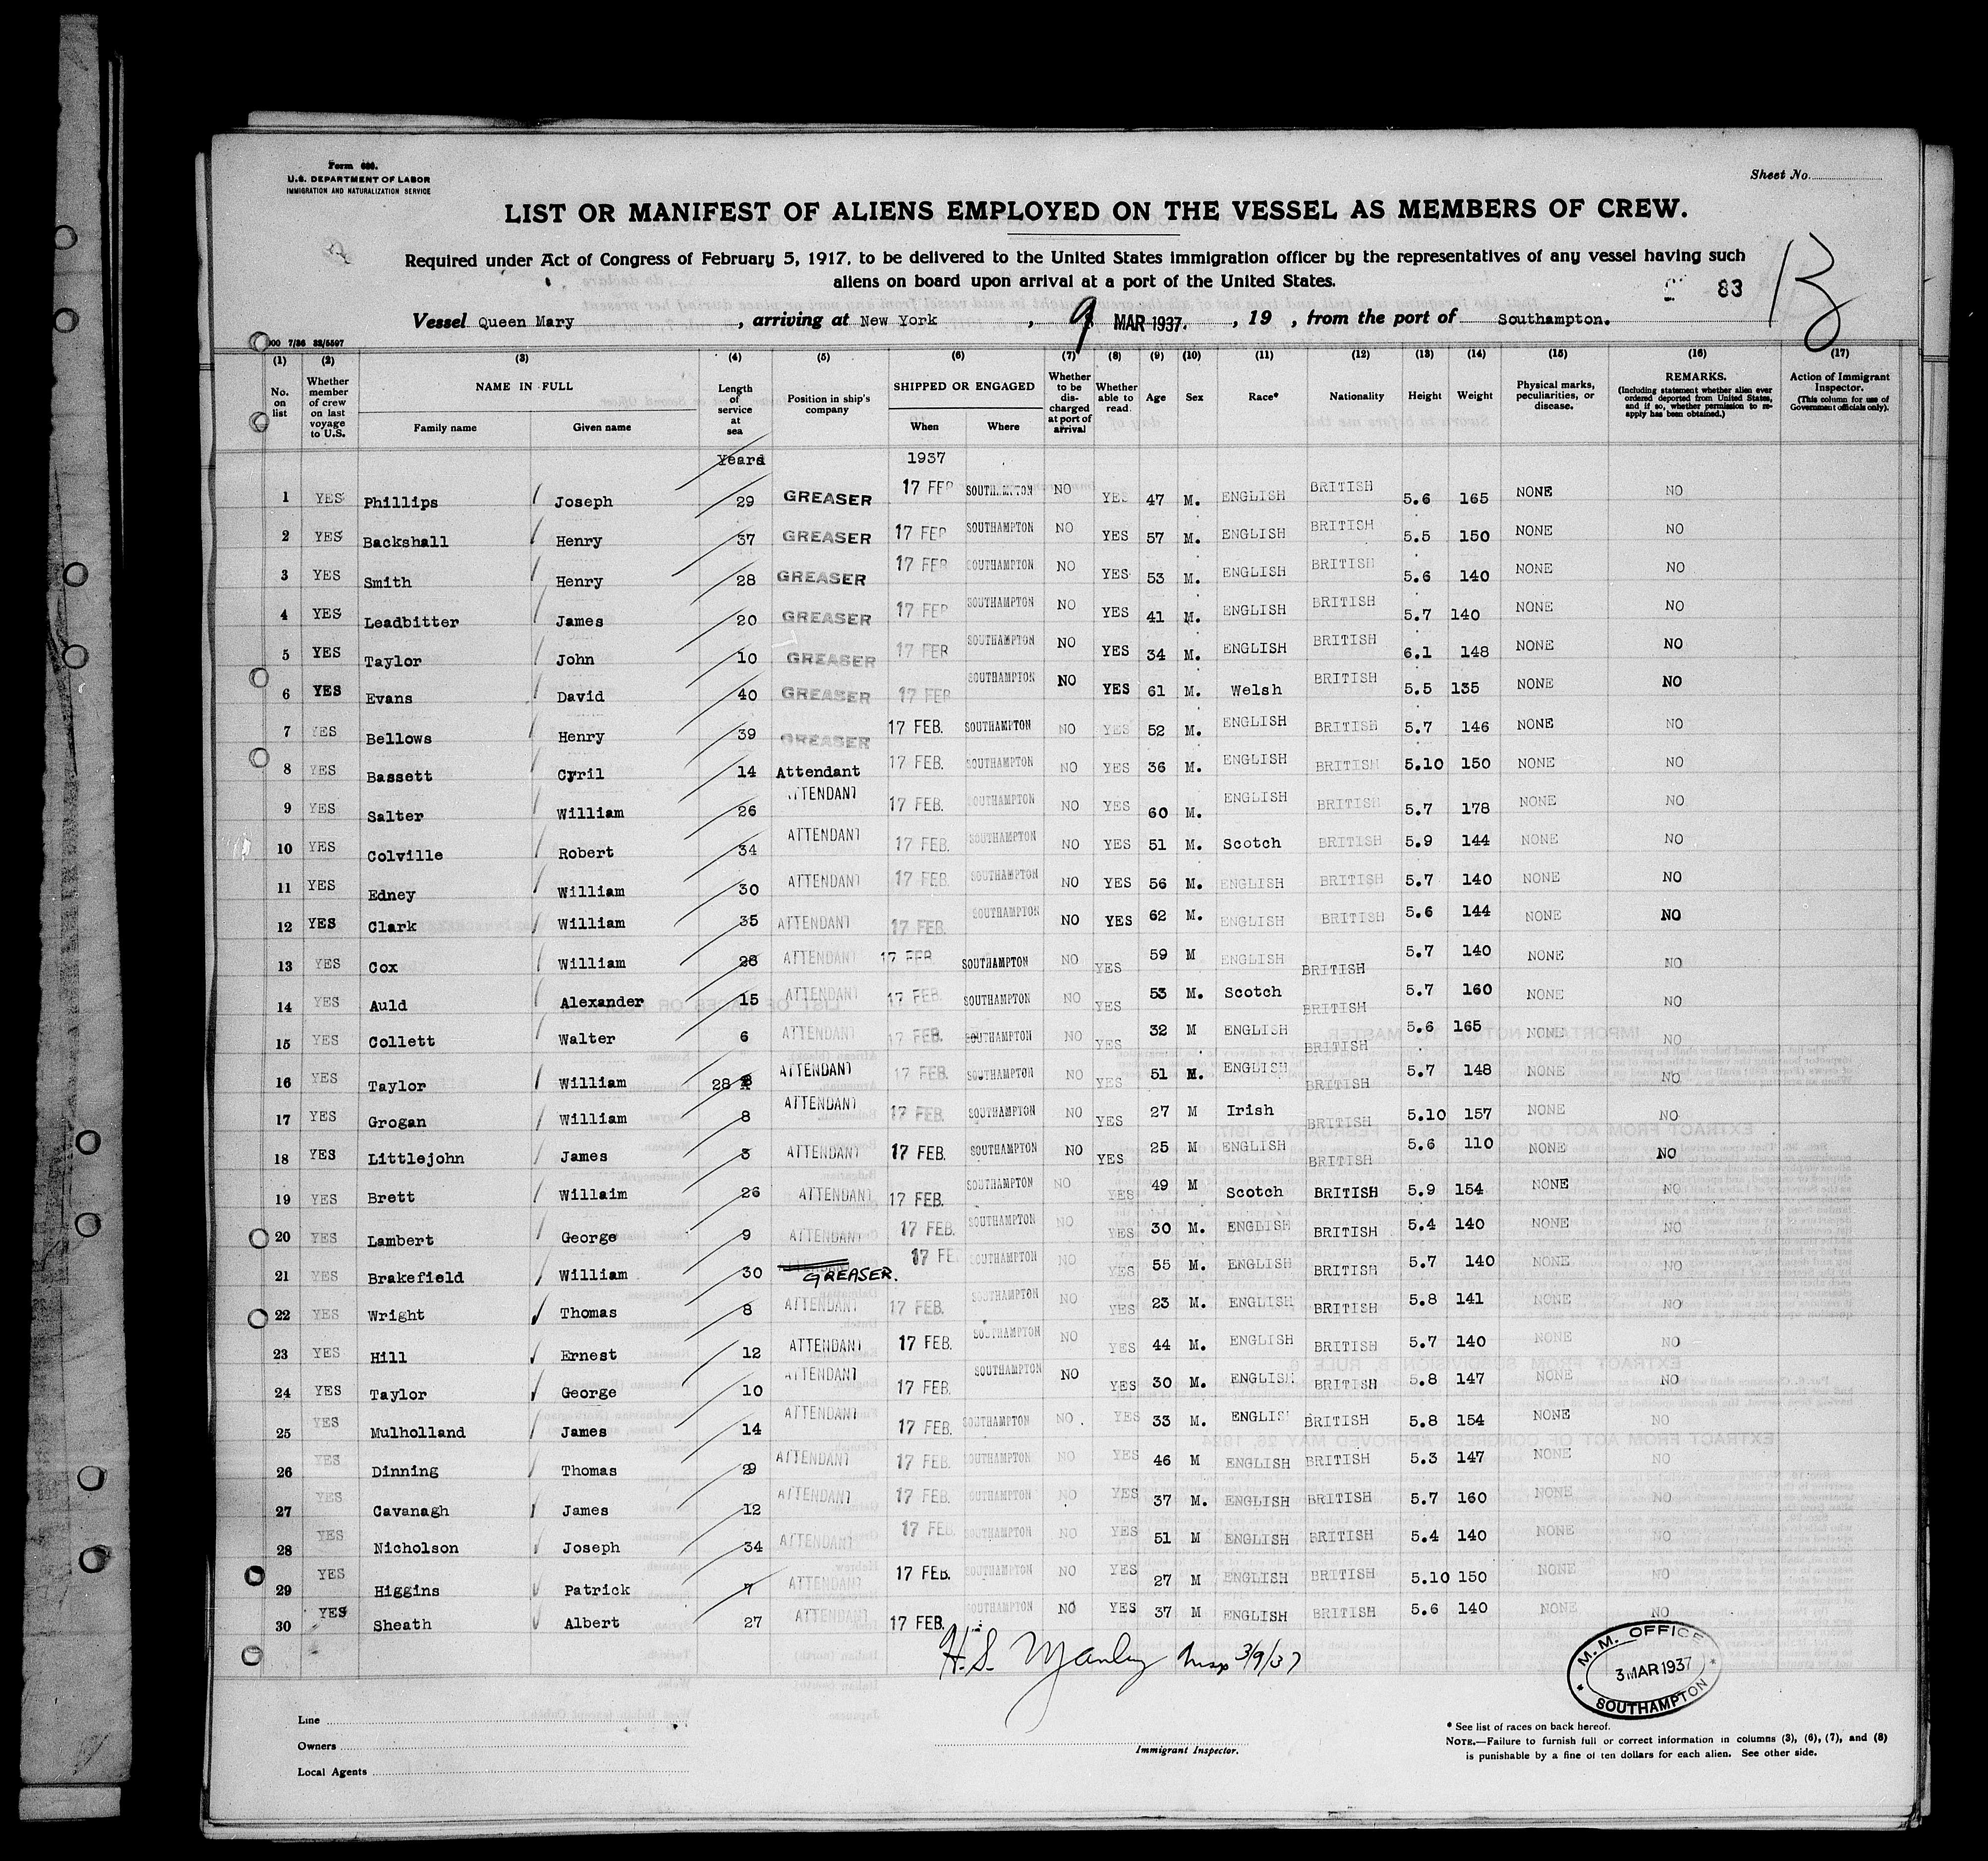 Form 680.
U.S. DEPARTMENT OF LABOR
IMMIGRATION AND NATURALIZATION SERVICE
Sheet No.
LIST OR MANIFEST OF ALIENS EMPLOYED ON THE VESSEL AS MEMBERS OF CREW.
Required under Act of Congress of February 5, 1917, to be delivered to the United States immigration officer by the representatives of any vessel having such
aliens on board upon arrival at a port of the United States.
83
B
Vessel Queen Mary, arriving at New York, 9 MAR 1937., 19 , from the port of Southampton.
000 7/36 33/5597
(1) (2) (3) (4) (5) (6) (7) (8) (9) (10) (11) (12) (13) (14) (15) (16) (17)
No. on list
Whether member of crew on last voyage to U.S.
NAME IN FULL
Family name Given name
Length of service at sea
Position in ship's company
SHIPPED OR ENGAGED
When Where
Whether to be discharged at port of arrival
Whether able to read
Age
Sex
Race*
Nationality
Height
Weight
Physical marks, peculiarities, or disease.
REMARKS.
(Including statement whether alien ever ordered deported from United States, and if so, whether permission to reapply has been obtained.)
Action of Immigrant Inspector.
(This column for use of Government officials only).
Years 1937
1 YES Phillips Joseph 29 GREASER 17 FEB SOUTHAMPTON NO YES 47 M. ENGLISH BRITISH 5.6 165 NONE NO
2 YES Backshall Henry 37 GREASER 17 FEB SOUTHAMPTON NO YES 57 M. ENGLISH BRITISH 5.5 150 NONE NO
3 YES Smith Henry 28 GREASER 17 FEB SOUTHAMPTON NO YES 53 M. ENGLISH BRITISH 5.6 140 NONE NO
4 YES Leadbitter James 20 GREASER 17 FEB SOUTHAMPTON NO YES 41 M. ENGLISH BRITISH 5.7 140 NONE NO
5 YES Taylor John 10 GREASER 17 FEB SOUTHAMPTON NO YES 34 M. ENGLISH BRITISH 6.1 148 NONE NO
6 YES Evans David 40 GREASER 17 FEB SOUTHAMPTON NO YES 61 M. Welsh BRITISH 5.5 135 NONE NO
7 YES Bellows Henry 39 GREASER 17 FEB. SOUTHAMPTON NO YES 52 M. ENGLISH BRITISH 5.7 146 NONE NO
8 YES Bassett Cyril 14 Attendant 17 FEB. SOUTHAMPTON NO YES 36 M. ENGLISH BRITISH 5.10 150 NONE NO
9 YES Salter William 26 ATTENDANT 17 FEB. SOUTHAMPTON NO YES 60 M. ENGLISH BRITISH 5.7 178 NONE NO
10 YES Colville Robert 34 ATTENDANT 17 FEB. SOUTHAMPTON NO YES 51 M. Scotch BRITISH 5.9 144 NONE NO
11 YES Edney William 30 ATTENDANT 17 FEB. SOUTHAMPTON NO YES 56 M. ENGLISH BRITISH 5.7 140 NONE NO
12 YES Clark William 35 ATTENDANT 17 FEB. SOUTHAMPTON NO YES 62 M. ENGLISH BRITISH 5.6 144 NONE NO
13 YES Cox William 28 ATTENDANT 17 FEB SOUTHAMPTON NO YES 59 M ENGLISH BRITISH 5.7 140 NONE NO
14 YES Auld Alexander 15 ATTENDANT 17 FEB. SOUTHAMPTON NO YES 53 M. Scotch BRITISH 5.7 160 NONE NO
15 YES Collett Walter 6 ATTENDANT 17 FEB. SOUTHAMPTON NO YES 32 M ENGLISH BRITISH 5.6 165 NONE NO
16 YES Taylor William 28 ATTENDANT 17 FEB. SOUTHAMPTON NO YES 51 M. ENGLISH BRITISH 5.7 148 NONE NO
17 YES Grogan William 8 ATTENDANT 17 FEB. SOUTHAMPTON NO YES 27 M Irish BRITISH 5.10 157 NONE NO
18 YES Littlejohn James 3 ATTENDANT 17 FEB. SOUTHAMPTON NO YES 25 M ENGLISH BRITISH 5.6 110 NONE NO
19 YES Brett Willaim 26 ATTENDANT 17 FEB. SOUTHAMPTON NO YES 49 M Scotch BRITISH 5.9 154 NONE NO
20 YES Lambert George 9 ATTENDANT 17 FEB. SOUTHAMPTON NO YES 30 M. ENGLISH BRITISH 5.4 140 NONE NO
21 YES Brakefield William 30 GREASER. 17 FE SOUTHAMPTON NO YES 55 M. ENGLISH BRITISH 5.7 140 NONE NO
22 YES Wright Thomas 8 ATTENDANT 17 FEB. SOUTHAMPTON NO YES 23 M. ENGLISH BRITISH 5.8 141 NONE NO
23 YES Hill Ernest 12 ATTENDANT 17 FEB. SOUTHAMPTON NO YES 44 M. ENGLISH BRITISH 5.7 140 NONE NO
24 YES Taylor George 10 ATTENDANT 17 FEB. SOUTHAMPTON NO YES 30 M. ENGLISH BRITISH 5.8 147 NONE NO
25 YES Mulholland James 14 ATTENDANT 17 FEB. SOUTHAMPTON NO. YES 33 M. ENGLISH BRITISH 5.8 154 NONE NO
26 YES Dinning Thomas 29 ATTENDANT 17 FEB. SOUTHAMPTON NO YES 46 M ENGLISH BRITISH 5.3 147 NONE NO
27 YES Cavanagh James 12 ATTENDANT 17 FEB. SOUTHAMPTON NO YES 37 M. ENGLISH BRITISH 5.7 160 NONE NO
28 YES Nicholson Joseph 34 ATTENDANT 17 FEB. SOUTHAMPTON NO YES 51 M ENGLISH BRITISH 5.4 140 NONE NO
29 YES Higgins Patrick 7 ATTENDANT 17 FEB. SOUTHAMPTON NO YES 27 M ENGLISH BRITISH 5.10 150 NONE NO
30 YES Sheath Albert 27 ATTENDANT 17 FEB. SOUTHAMPTON NO YES 37 M ENGLISH BRITISH 5.6 140 NONE NO
H.S. Manley Insp 3/9/37
M.M. OFFICE
3 MAR 1937
SOUTHAMPTON
Line
Owners
Local Agents
Immigrant Inspector.
* See list of races on back hereof.
NOTE.—Failure to furnish full or correct information in columns (3), (6), (7), and (8)
is punishable by a fine of ten dollars for each alien. See other side.